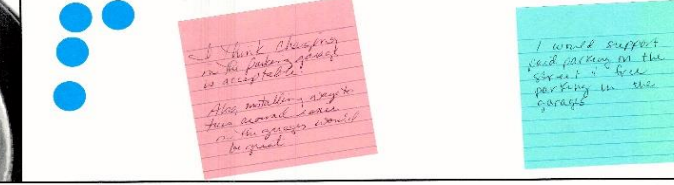 I think charging
in the parking garage
is acceptable.
Also, installing ways to
turn around easier
in the garages would
be great
I would support
paid parking on the
street & free
parking in the
garages